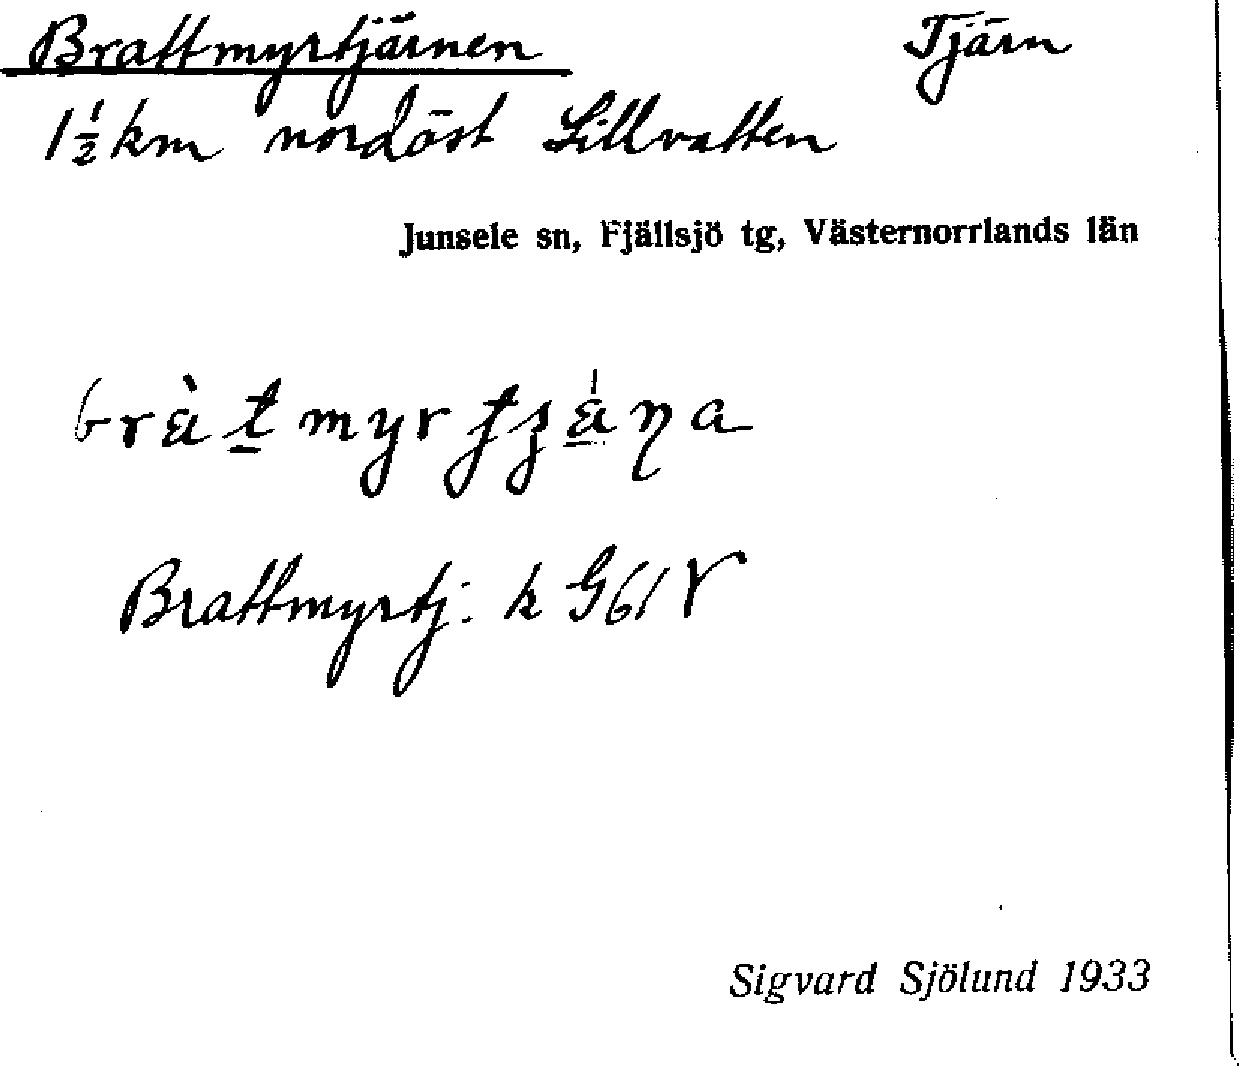 Brattmyrtjärnen Tjärn
1½ km nordöst Lillvatten
Junsele sn, Fjällsjö tg, Västernorrlands län
Brattmyrtj: k G61V
Sigvard Sjölund 1933